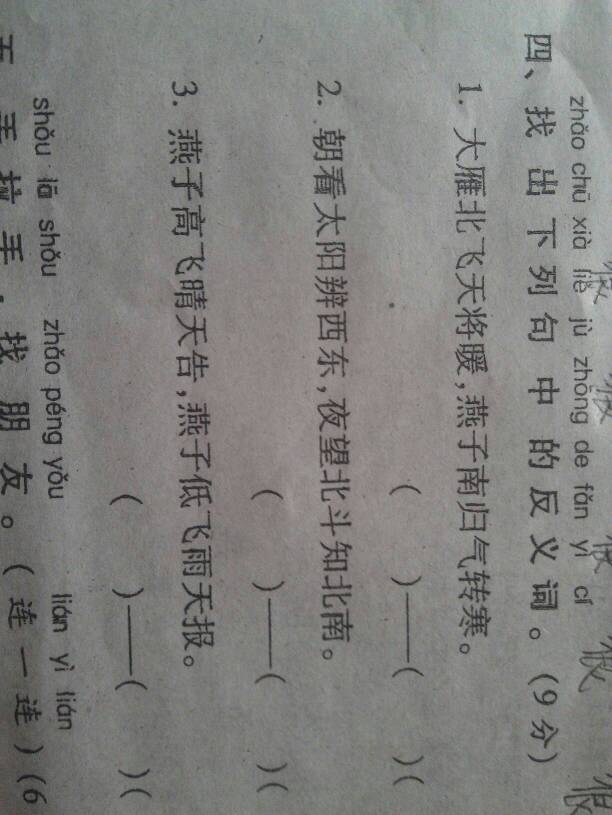 zhǎo chū xià liè jù zhōng de fǎn yì cí
四、找出下列句中的反义词。(9分)
1. 大雁北飞天将暖,燕子南归气转寒。
( )——( )(
2. 朝看太阳辨西东,夜望北斗知北南。
( )——( )(
3. 燕子高飞晴天告,燕子低飞雨天报。
( )——( )(
shǒu lā shǒu zhǎo péng yǒu lián yì lián
五 手拉手,找朋友。(连一连)(6